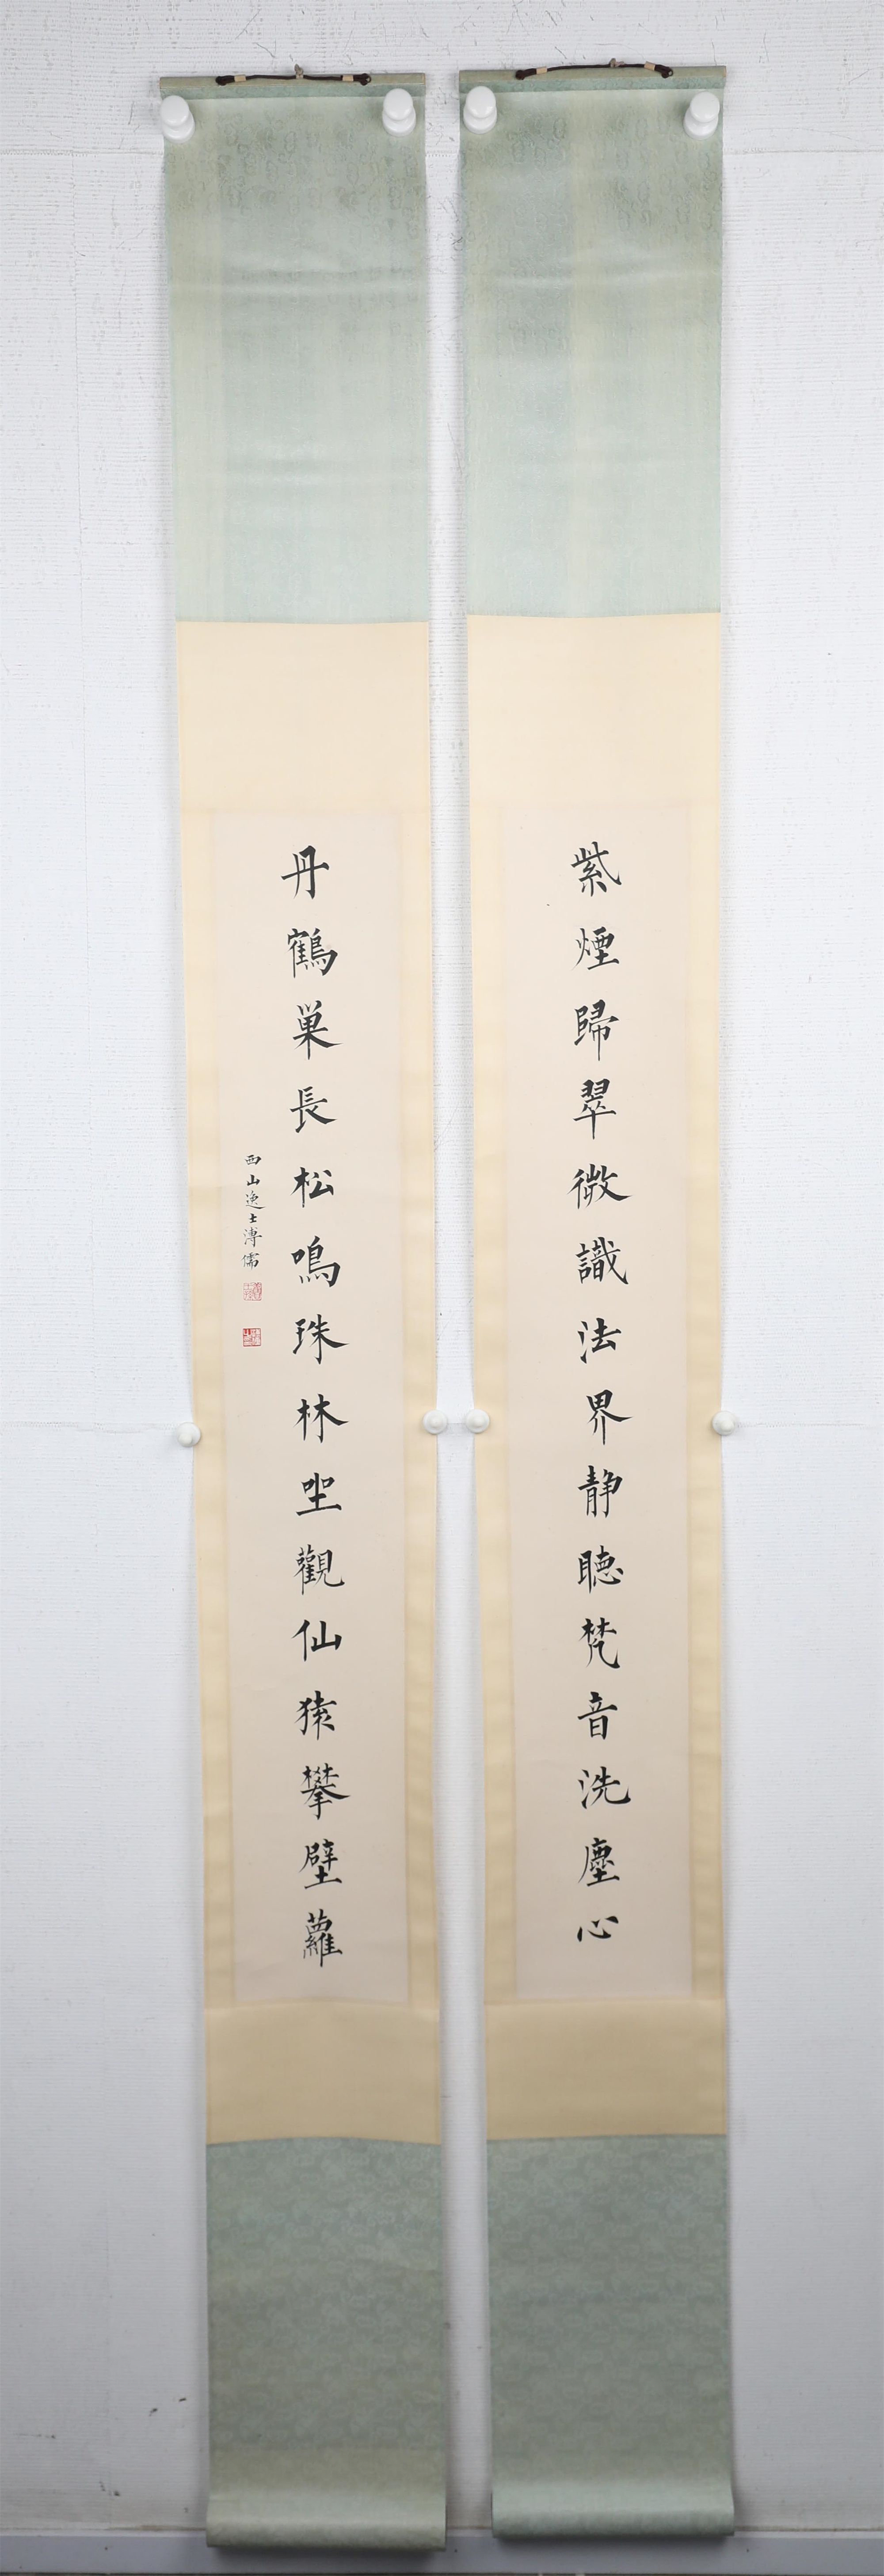 紫煙歸翠微識法界靜聽梵音洗塵心
丹鶴巢長松鳴珠林坐觀仙猿攀壁蘿
西山逸士溥儒